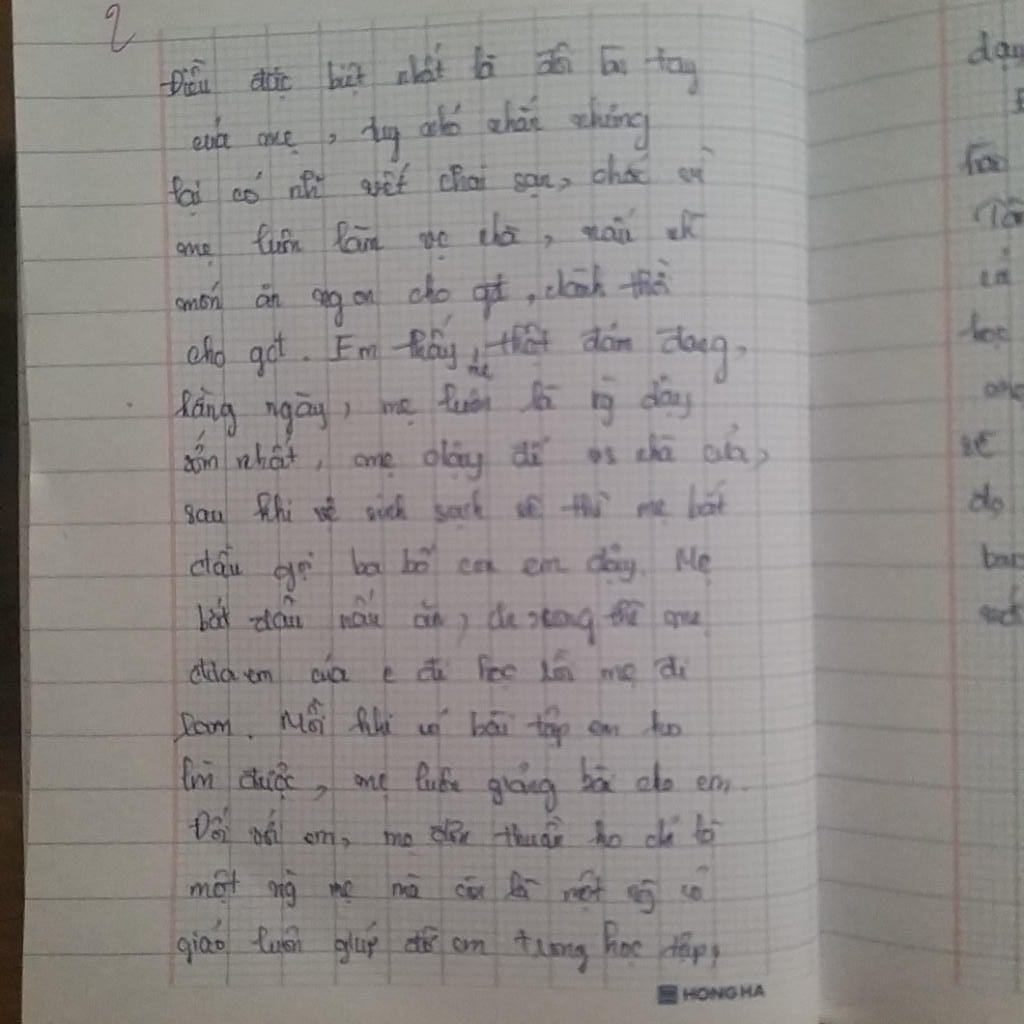 2
Điều đặc biệt nhất là đôi bàn tay
của mẹ, tuy nhỏ nhắn nhưng
lại có nh vết chai sạn, chắc vì
mẹ luôn làm vc nhà, nấu nh
món ăn ngon cho gđ, dành thời
cho gđ. Em thấy mẹ thật đảm đang,
hằng ngày, mẹ luôn là ng dậy
sớm nhất, mẹ dậy để nhà cửa,
sau khi sạch sẽ thì mẹ bắt
đầu gọi ba bố con em dậy. Mẹ
bắt đầu nấu ăn, xong thì mẹ
đưa em của e đi học rồi mẹ đi
làm. Mỗi khi có bài tập em ko
làm được, mẹ luôn giảng bài cho em.
Đối với em, mẹ đơn thuần ko chỉ là
một ng mẹ mà còn là một ng cô
giáo luôn giúp đỡ em trong học tập,
HONG HA
dạy
học